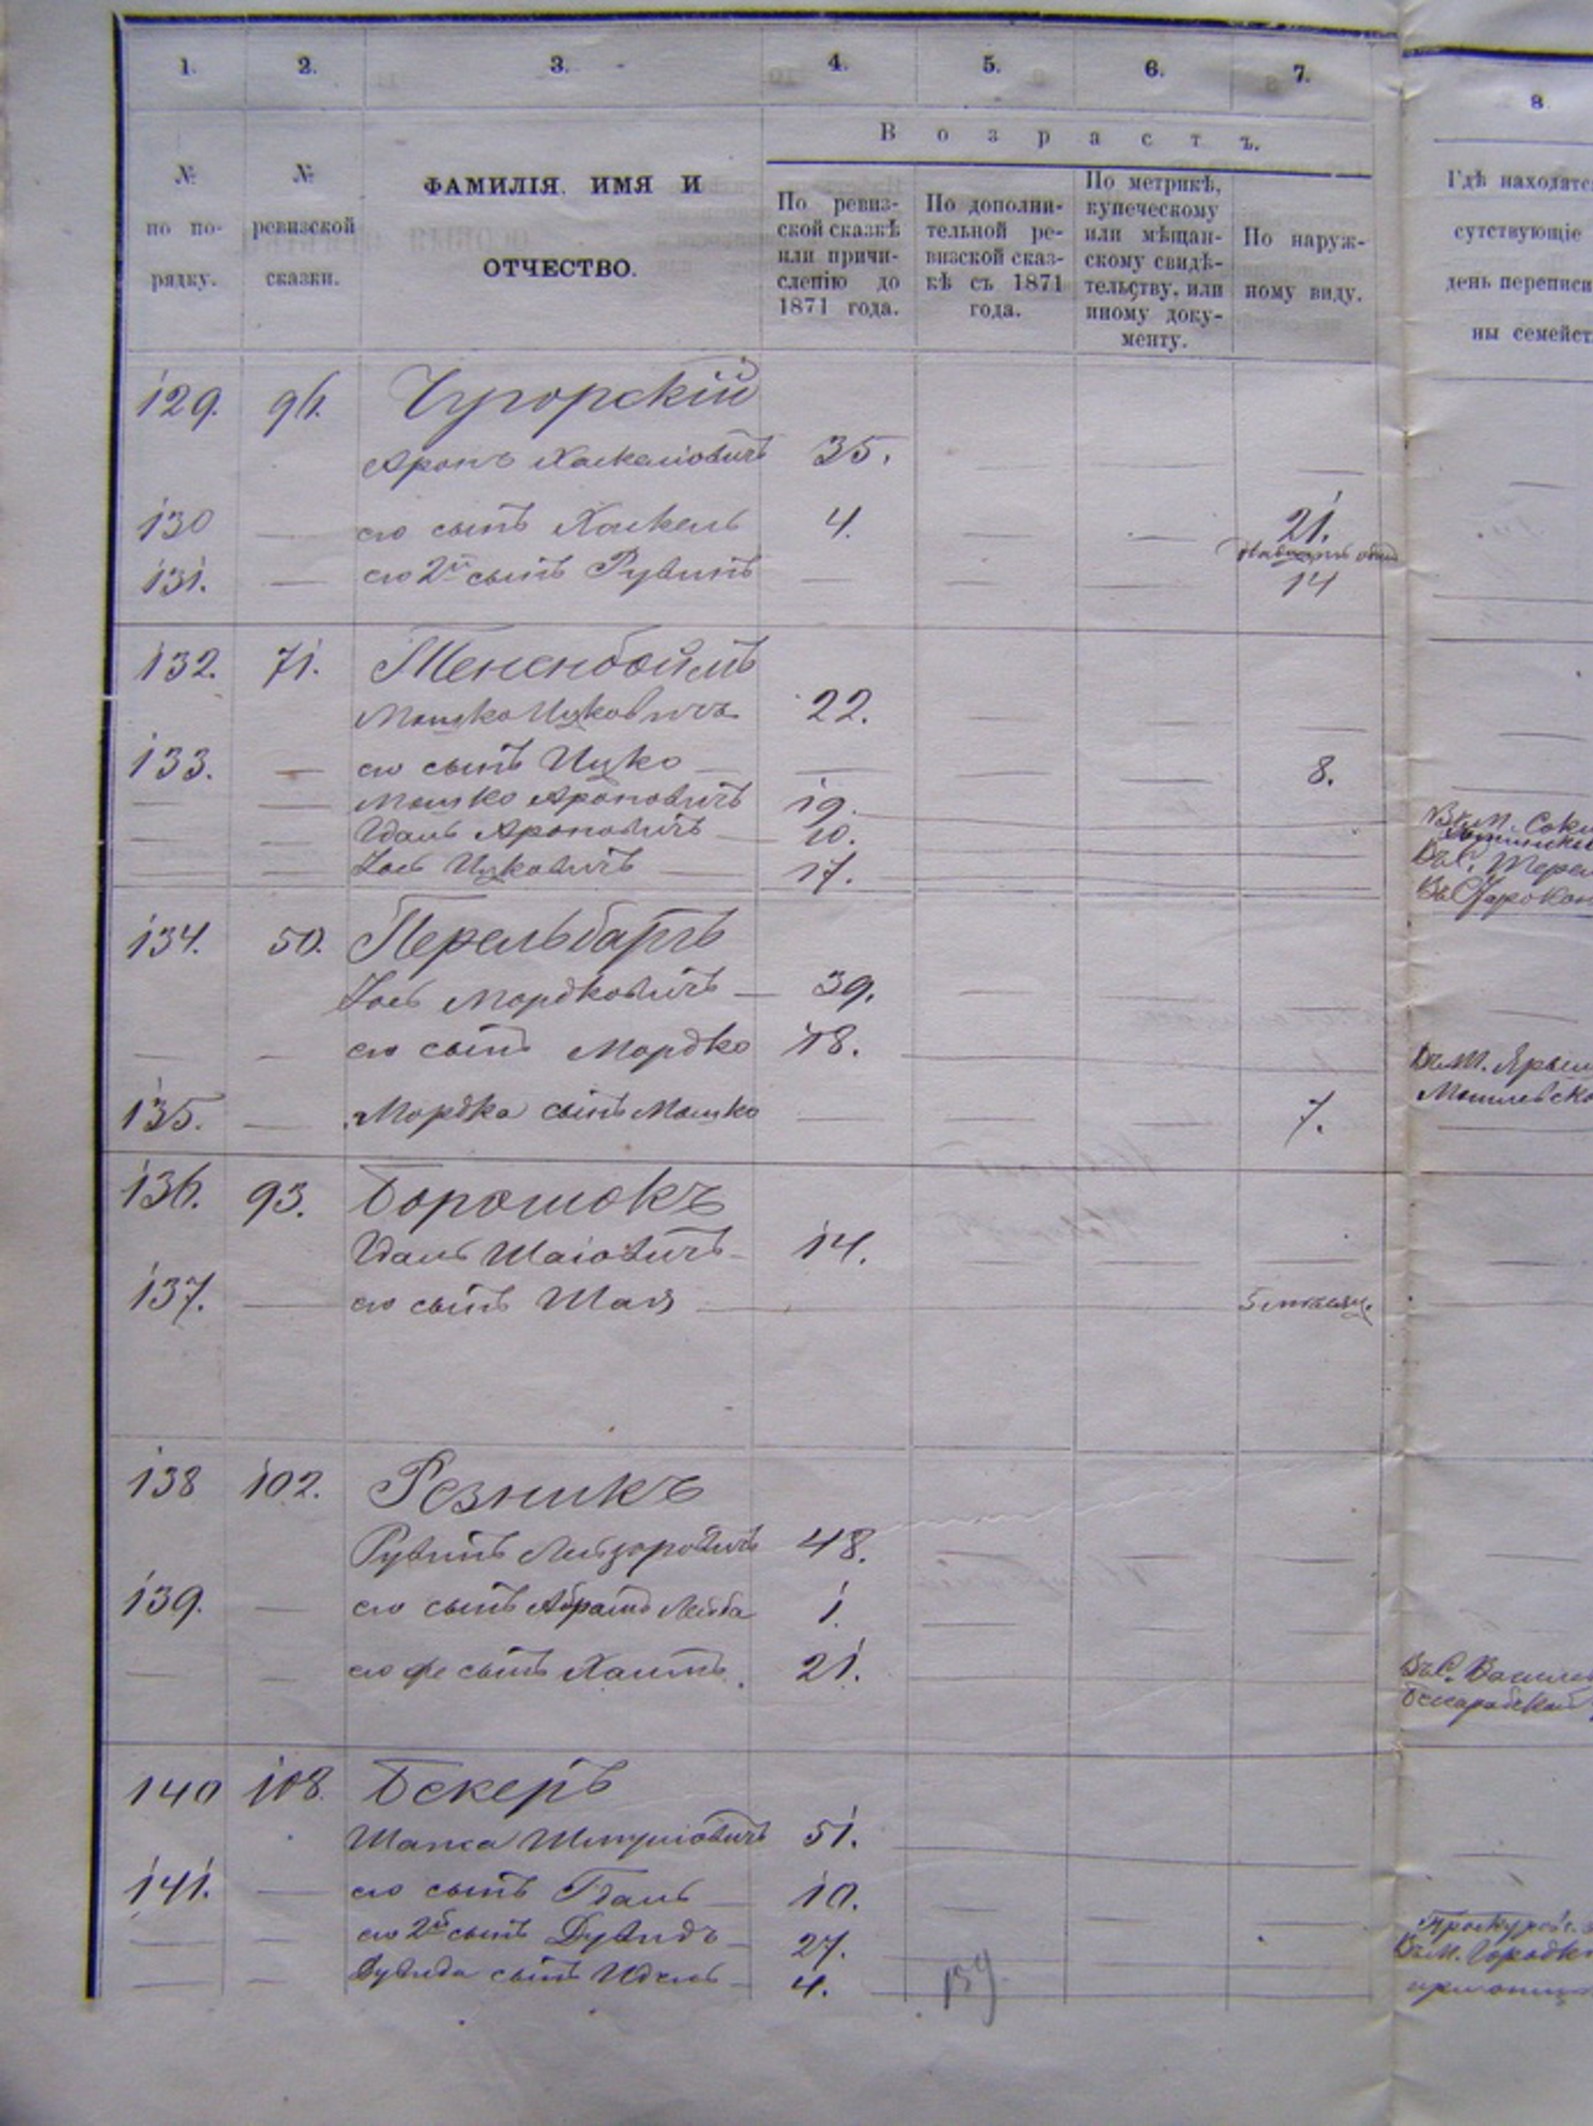 1. 2. 3. 4. 5. 6. 7. 8
№ по по-рядку.
№ ревизской сказки.
ФАМИЛІЯ, ИМЯ И ОТЧЕСТВО.
Возрастъ.
По ревиз-ской сказкѣ или причи-сленію до 1871 года.
По дополни-тельной ре-визской сказ-кѣ съ 1871 года.
По метрикѣ, купеческому или мѣщан-скому свидѣ-тельству, или иному доку-менту.
По наруж-ному виду.
Гдѣ находятс
сутствующіе
день переписи
ны семейст
129. 96. Чугорскій
Аронъ Хаскеліовичъ 35. — — —
130 — его сынъ Хаскель 4. — — 21.
131. — его 2й сынъ Рувинъ — — — 14
132. 71. Тененбоймъ
Мошко Ицковичъ 22. — — —
133. — его сынъ Ицко — — — — 8.
— — Мошко Ароновичъ 19.
— — Идаль Ароновичъ 10.
— — Іось Ицковичъ — 17.
134. 50. Перельбартъ
Іось Мордковичъ — 39. — —
— — его сынъ Мордко 18. Въ М.
135. — Мордка сынъ Мошко — — — 7.
136. 93. Борошокъ
Идаль Шаіовичъ 14. — — —
137. — его сынъ Шая — 5 мѣсяц.
138 102. Резникъ
Рувинъ Лейзоровичъ 48. — — —
139. — его сынъ Абрамъ Лейба 1. — — —
— — его же сынъ Хаимъ. 21. Въ С.
140 108. Бекеръ
Шапса Шмуліовичъ 51.
141. — его сынъ Идаль — 10. — — —
— — его 2й сынъ Дувидъ — 27. Въ М.
— — Дувида сынъ Идель — 4.
139